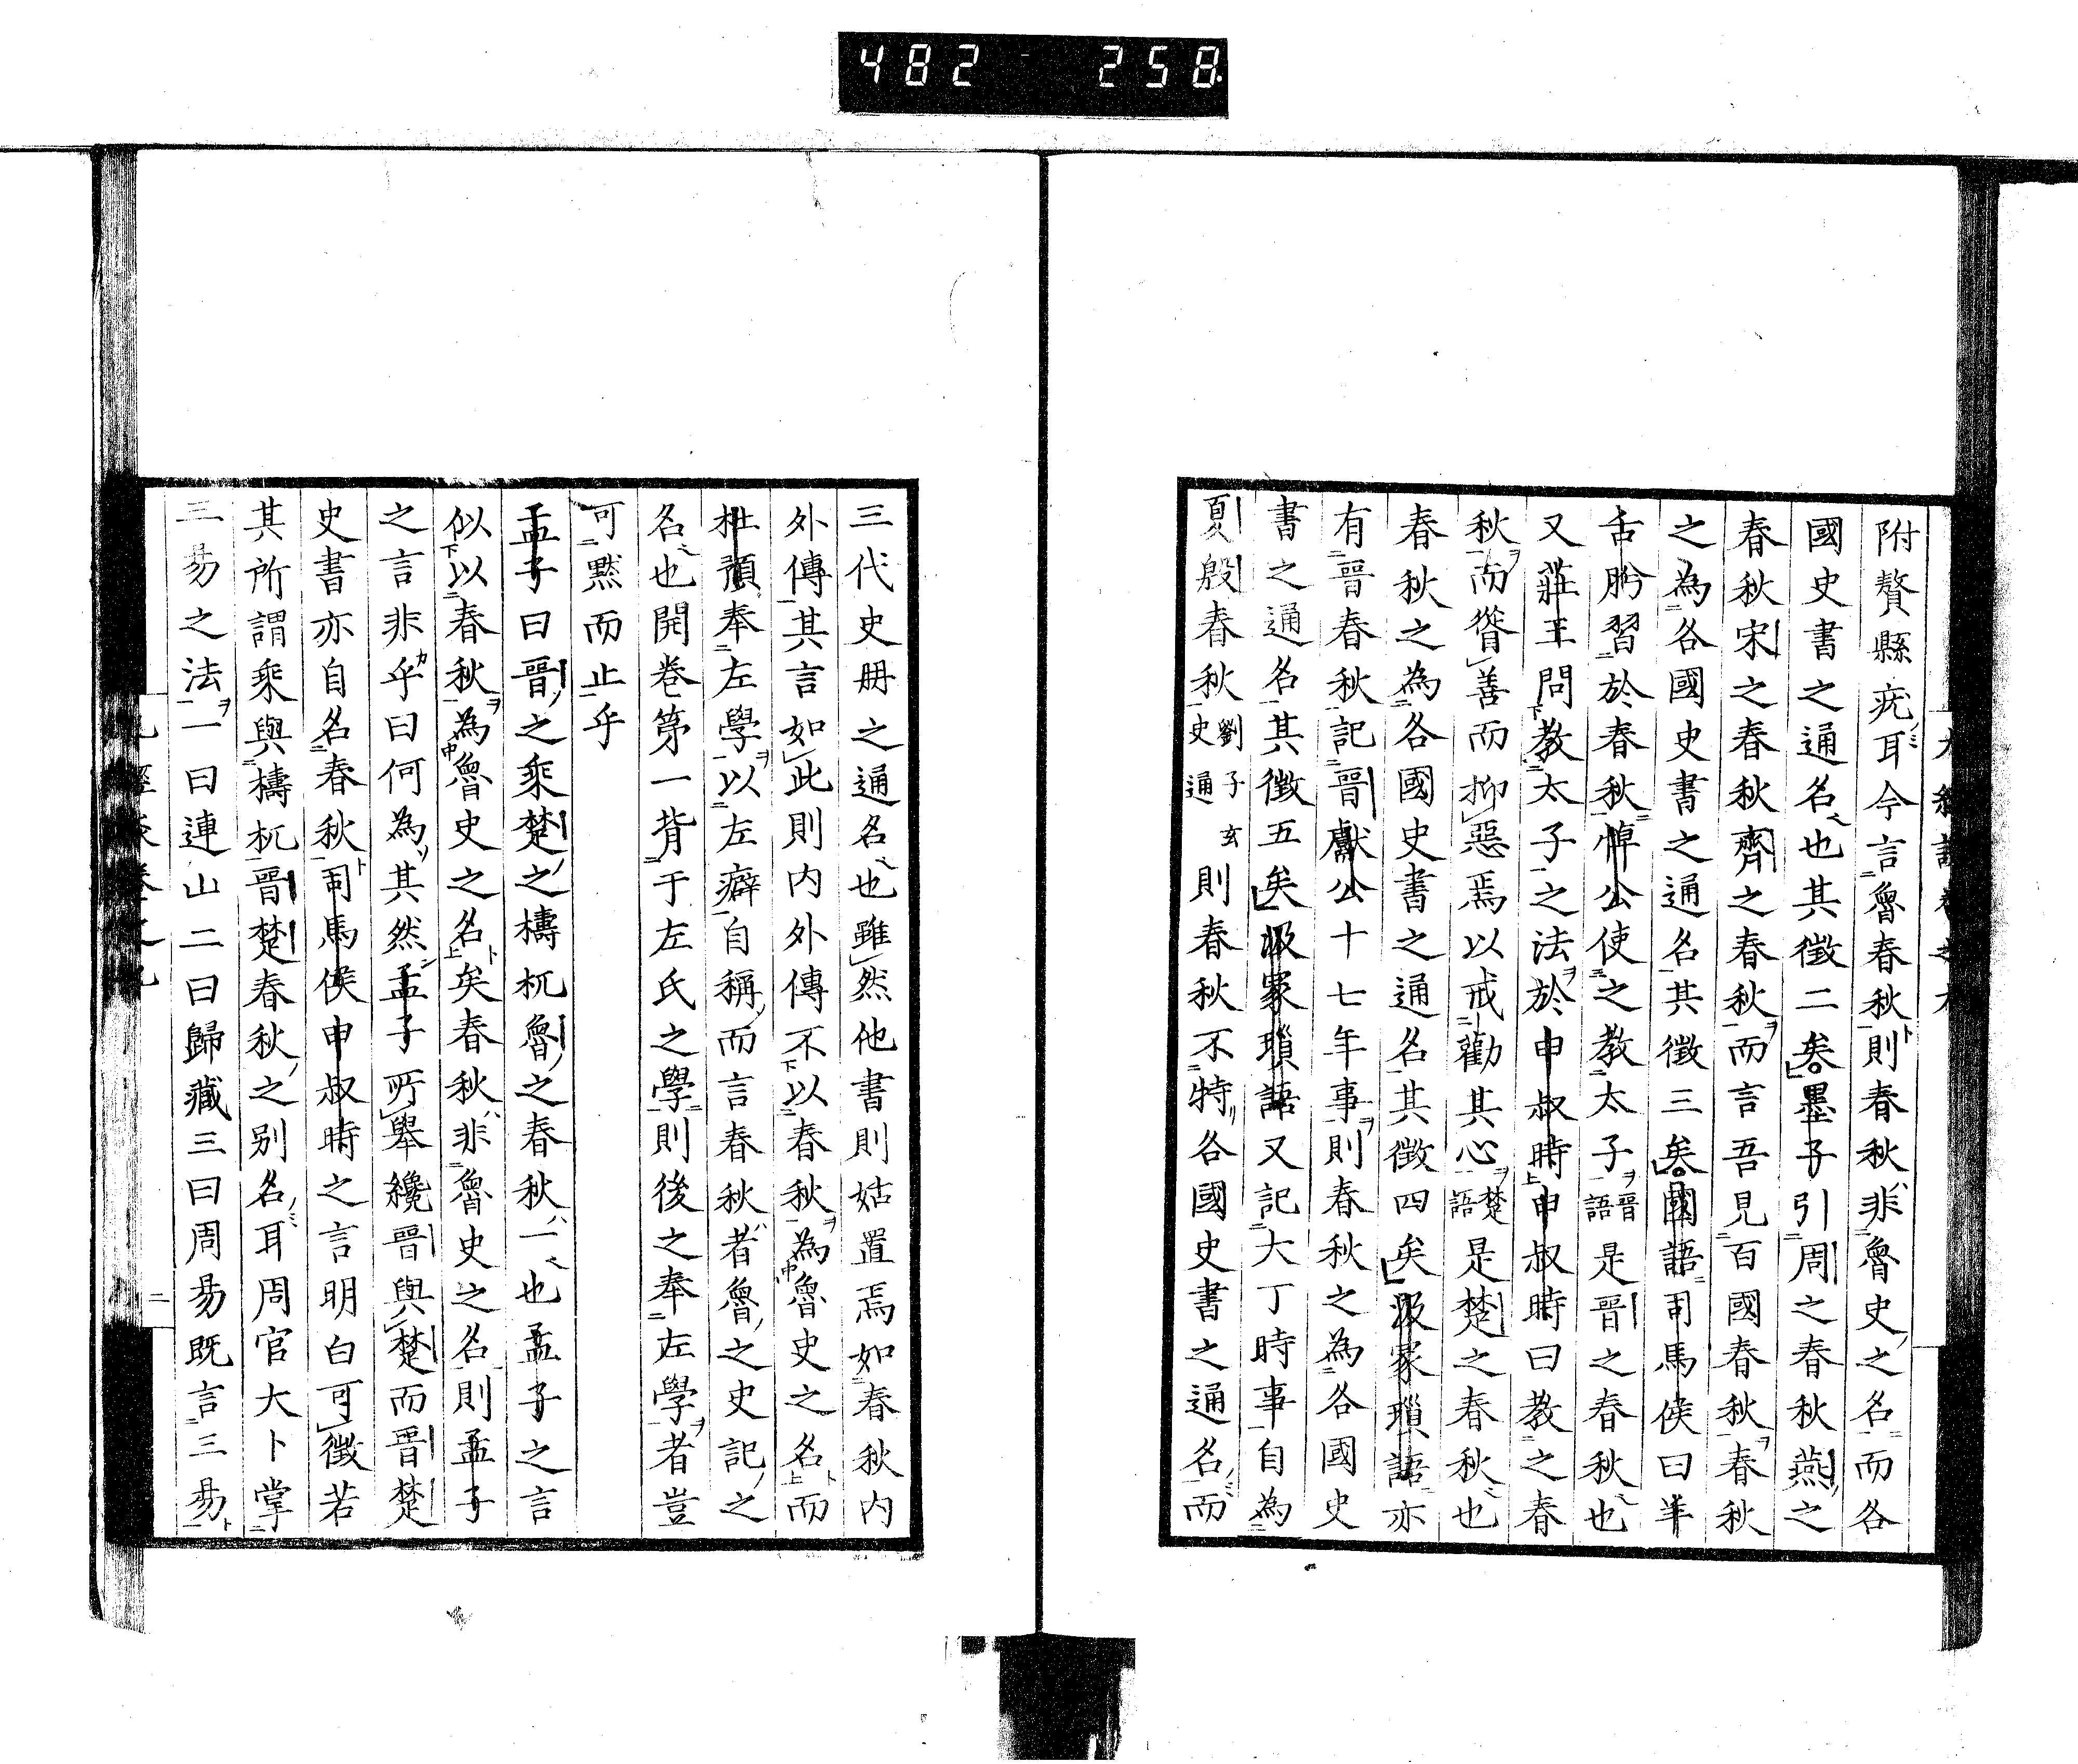 482 258
附贅縣疣耳今言魯春秋則春秋非魯史之名而各
國史書之通名也其徵二矣墨子引周之春秋燕之
春秋宋之春秋齊之春秋而言吾見百國春秋春秋
之為各國史書之通名其徵三矣國語司馬侯曰羊
舌肸習於春秋悼公使之教太子晉語是晉之春秋也
又莊王問教太子之法於申叔時申叔時曰教之春
秋而聳善而抑惡焉以戒勸其心楚語是楚之春秋也
春秋之為各國史書之通名其徵四矣汲冢瑣語亦
有晉春秋記晉獻公十七年事則春秋之為各國史
書之通名其徵五矣汲冢瑣語又記大丁時事自為
夏殷春秋劉子玄史通則春秋不特各國史書之通名而
三代史冊之通名也雖然他書則姑置焉如春秋内
外傳其言如此則内外傳不以春秋為魯史之名而
杜預奉左學以左癖自稱而言春秋者魯之史記之
名也開卷第一背于左氏之學則後之奉左學者豈
可黙而止乎
孟子曰晉之乘楚之檮杌魯之春秋一也孟子之言
似以春秋為魯史之名矣春秋非魯史之名則孟子
之言非乎曰何為其然孟子所舉纔晉與楚而晉楚
史書亦自名春秋司馬侯申叔時之言明白可徵若
其所謂乘與檮杌晉楚春秋之別名耳周官大卜掌
三易之法一曰連山二曰歸藏三曰周易既言三易
二